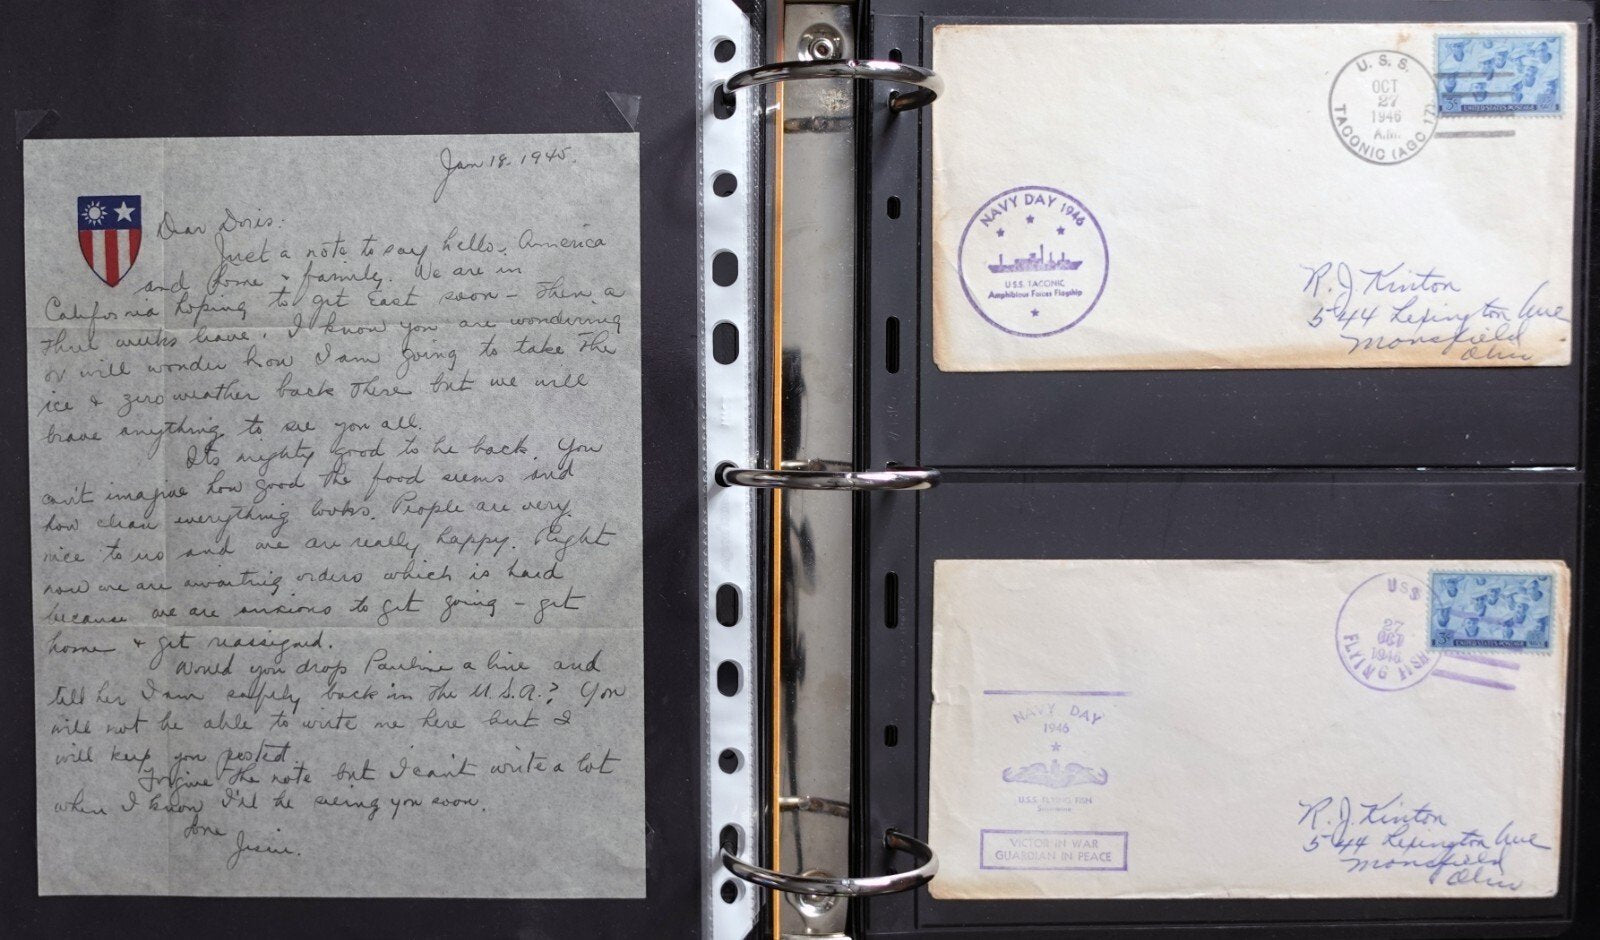 Jan 18, 1945.
Dear Doris.
Just a note to say hello. America
and home & family. We are in
California hoping to get East soon – then a
three weeks leave. I know you are wondering
or will wonder how I am going to take the
ice & zero weather back there but we will
brave anything to see you all.
Its mighty good to be back. You
can't imagine how good the food seems and
how clean everything looks. People are very
nice to us and we are really happy. Right
now we are awaiting orders which is hard
because we are anxious to get going – get
home & get reassigned.
Would you drop Pauline a line and
tell her I am safely back in the U.S.A.? You
will not be able to write me here but I
will keep you posted.
Forgive the note but I can't write a lot
when I know I'll be seeing you soon.
Love
U. S. S.
OCT
27
1946
A.M.
TACONIC (AGC 17)
3¢ UNITED STATES POSTAGE
NAVY DAY 1946
U.S.S. TACONIC
Amphibious Forces Flagship
R. J. Kinton
544 Lexington Ave
Mansfield
Ohio
USS
27
OCT
1946
FLYING FISH
3¢ UNITED STATES POSTAGE
NAVY DAY
1946
U.S.S. FLYING FISH
Submarine
VICTOR IN WAR
GUARDIAN IN PEACE
R. J. Kinton
544 Lexington Ave
Mansfield
Ohio